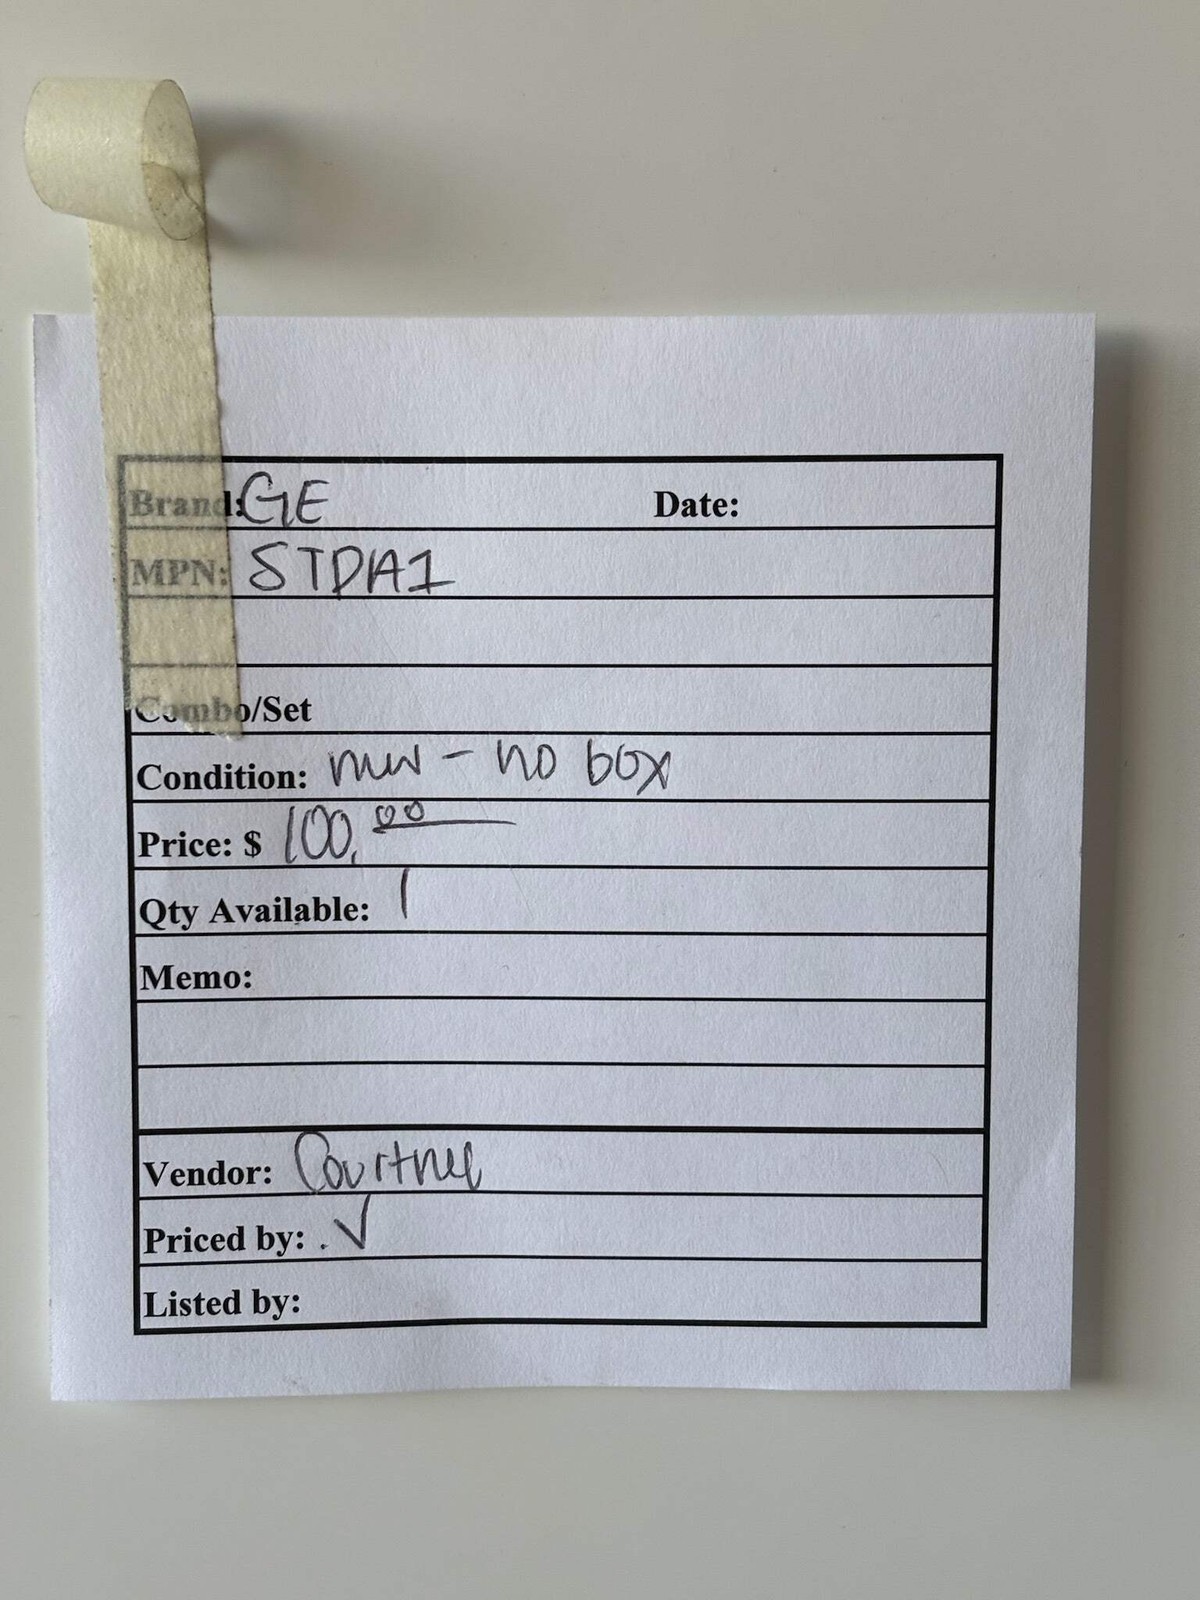 Brand: GE Date:
MPN: STDA1
Combo/Set
Condition: new - no box
Price: $ 100.00
Qty Available: 1
Memo:
Vendor: Courtney
Priced by: . ✓
Listed by: